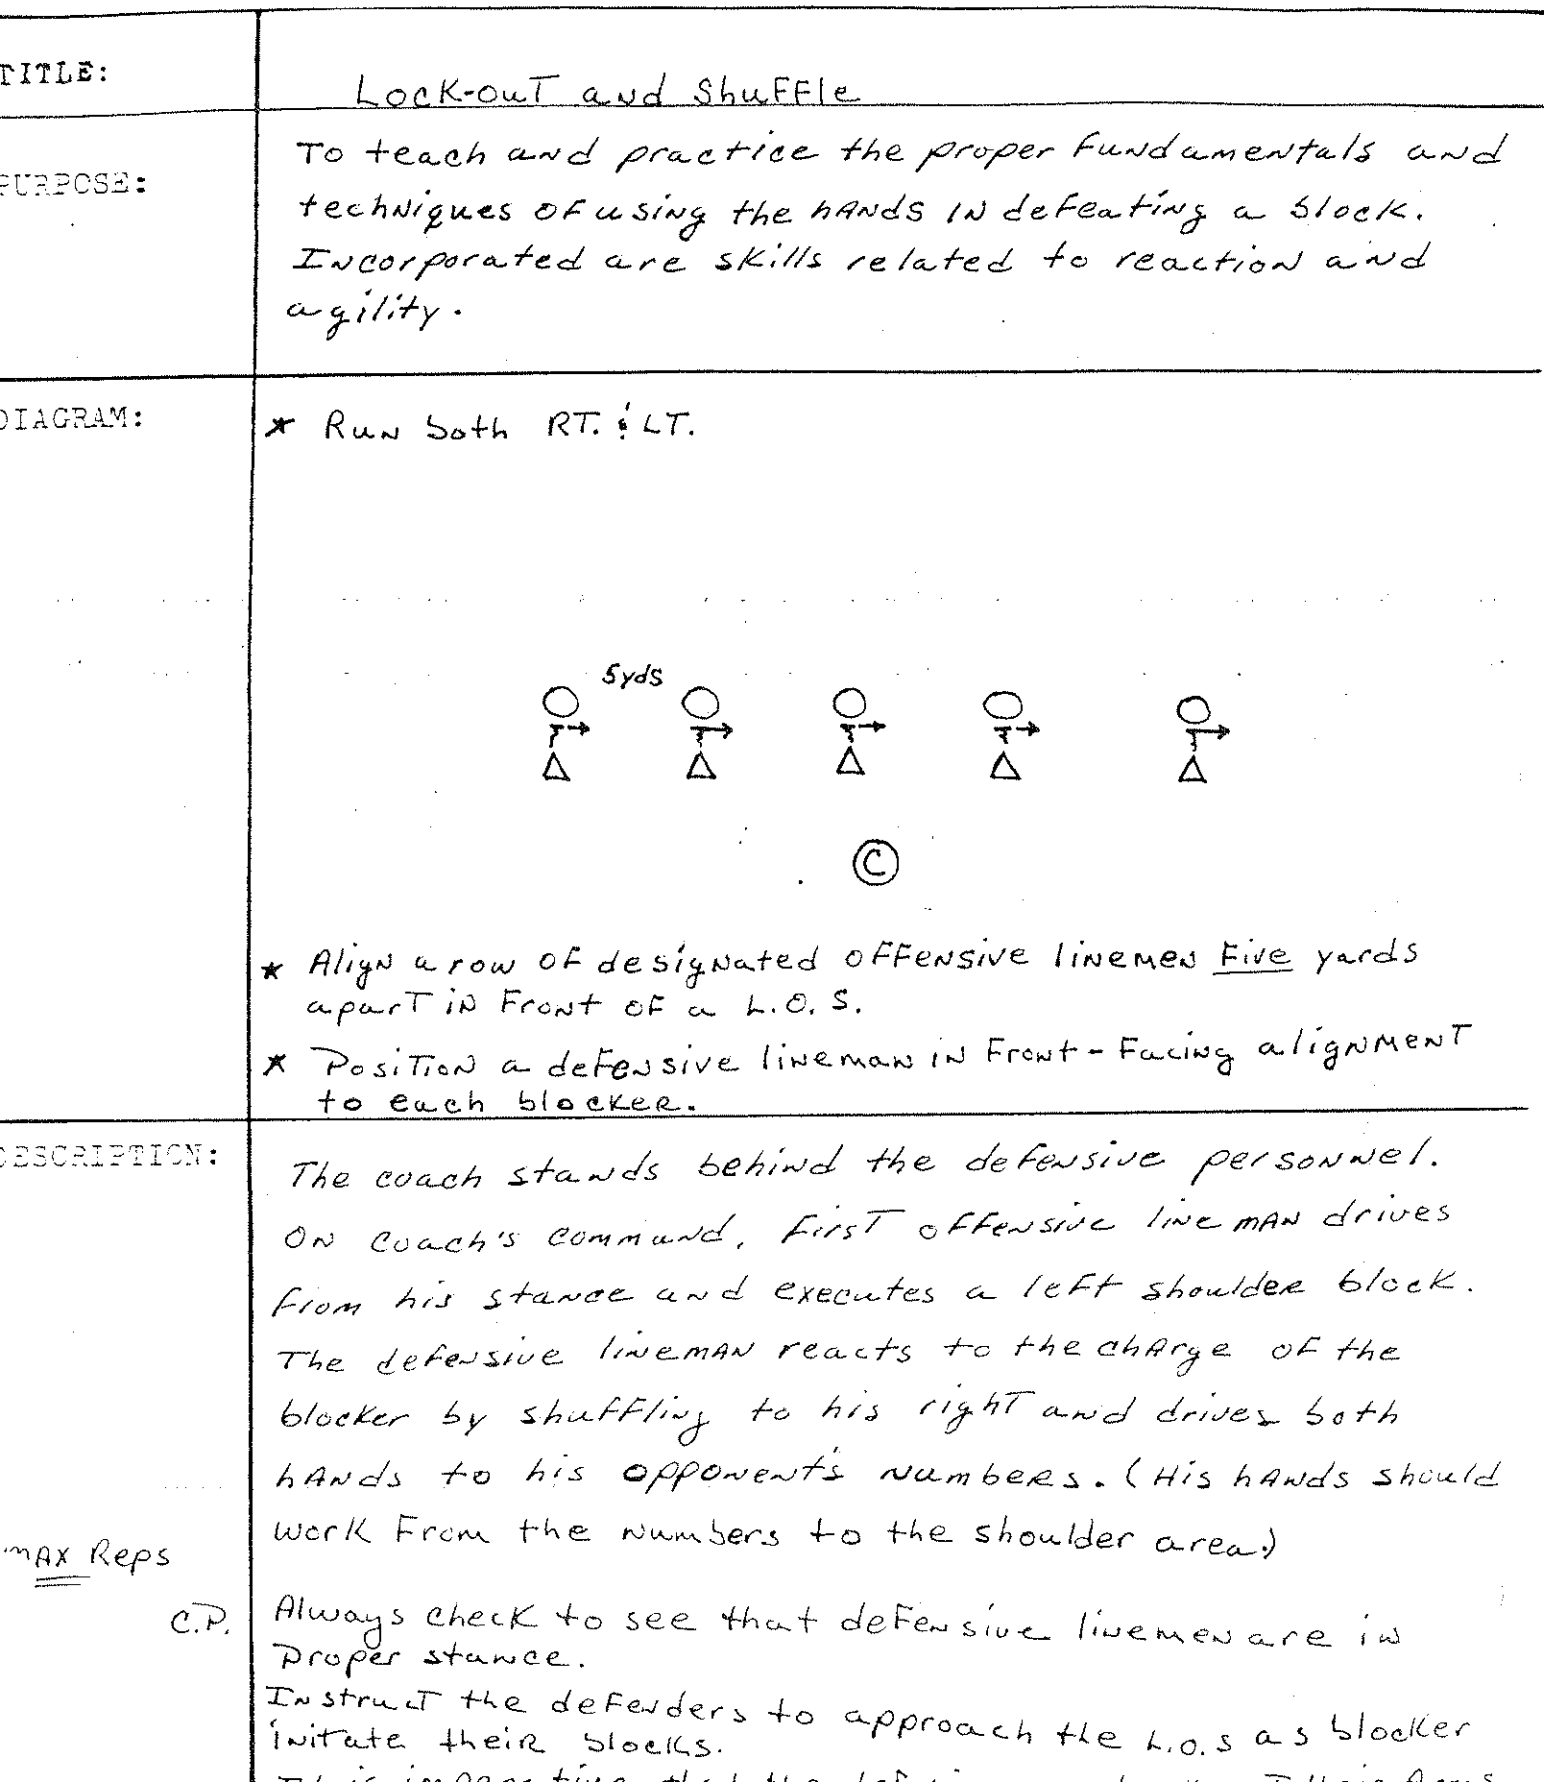 TITLE:
Lock-out and Shuffle
PURPOSE:
To teach and practice the proper fundamentals and
techniques of using the hands in defeating a block.
Incorporated are skills related to reaction and
agility.
DIAGRAM:
* Run both RT. & LT.
5yds
C
* Align a row of designated offensive linemen Five yards
apart in Front of a L.O.S.
* Position a defensive lineman in Front-Facing alignment
to each blocker.
DESCRIPTION:
The coach stands behind the defensive personnel.
On coach's command, first offensive lineman drives
from his stance and executes a left shoulder block.
The defensive lineman reacts to the charge of the
blocker by shuffling to his right and drives both
hands to his opponent's numbers. (His hands should
work From the numbers to the shoulder area.)
max Reps
C.P.
Always check to see that defensive linemen are in
proper stance.
Instruct the defenders to approach the L.O.S as blocker
initate their blocks.